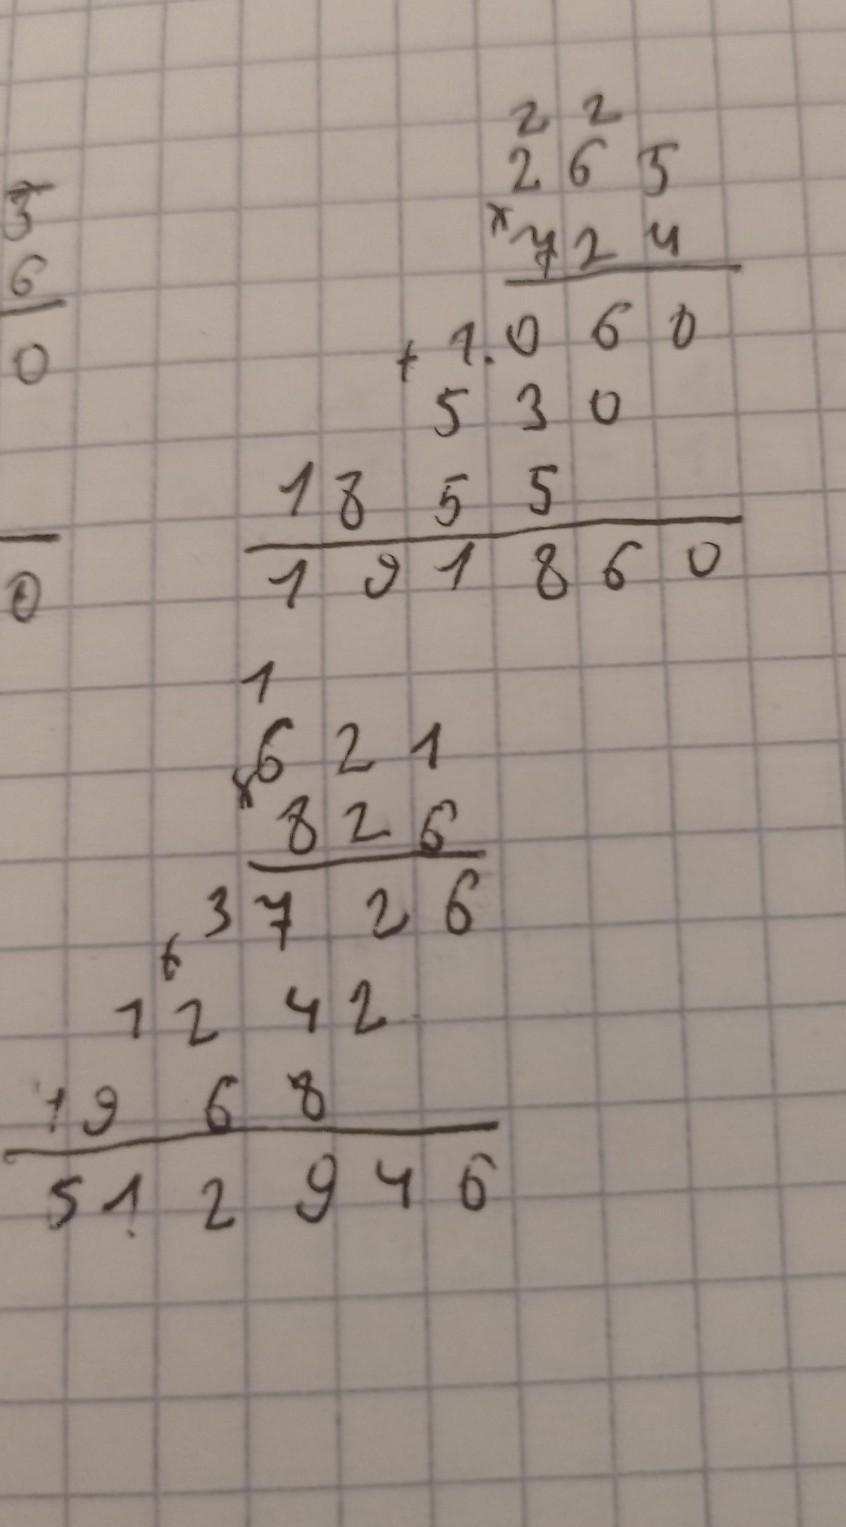 5
6
0
0
2 2
2 6 5
x 7 2 4
+ 1.0 6 0
5 3 0
1 8 5 5
1 9 1 8 6 0
1
6 2 1
x 8 2 6
3 7 2 6
6
1 2 4 2
1 9 6 8
5 1 2 9 4 6